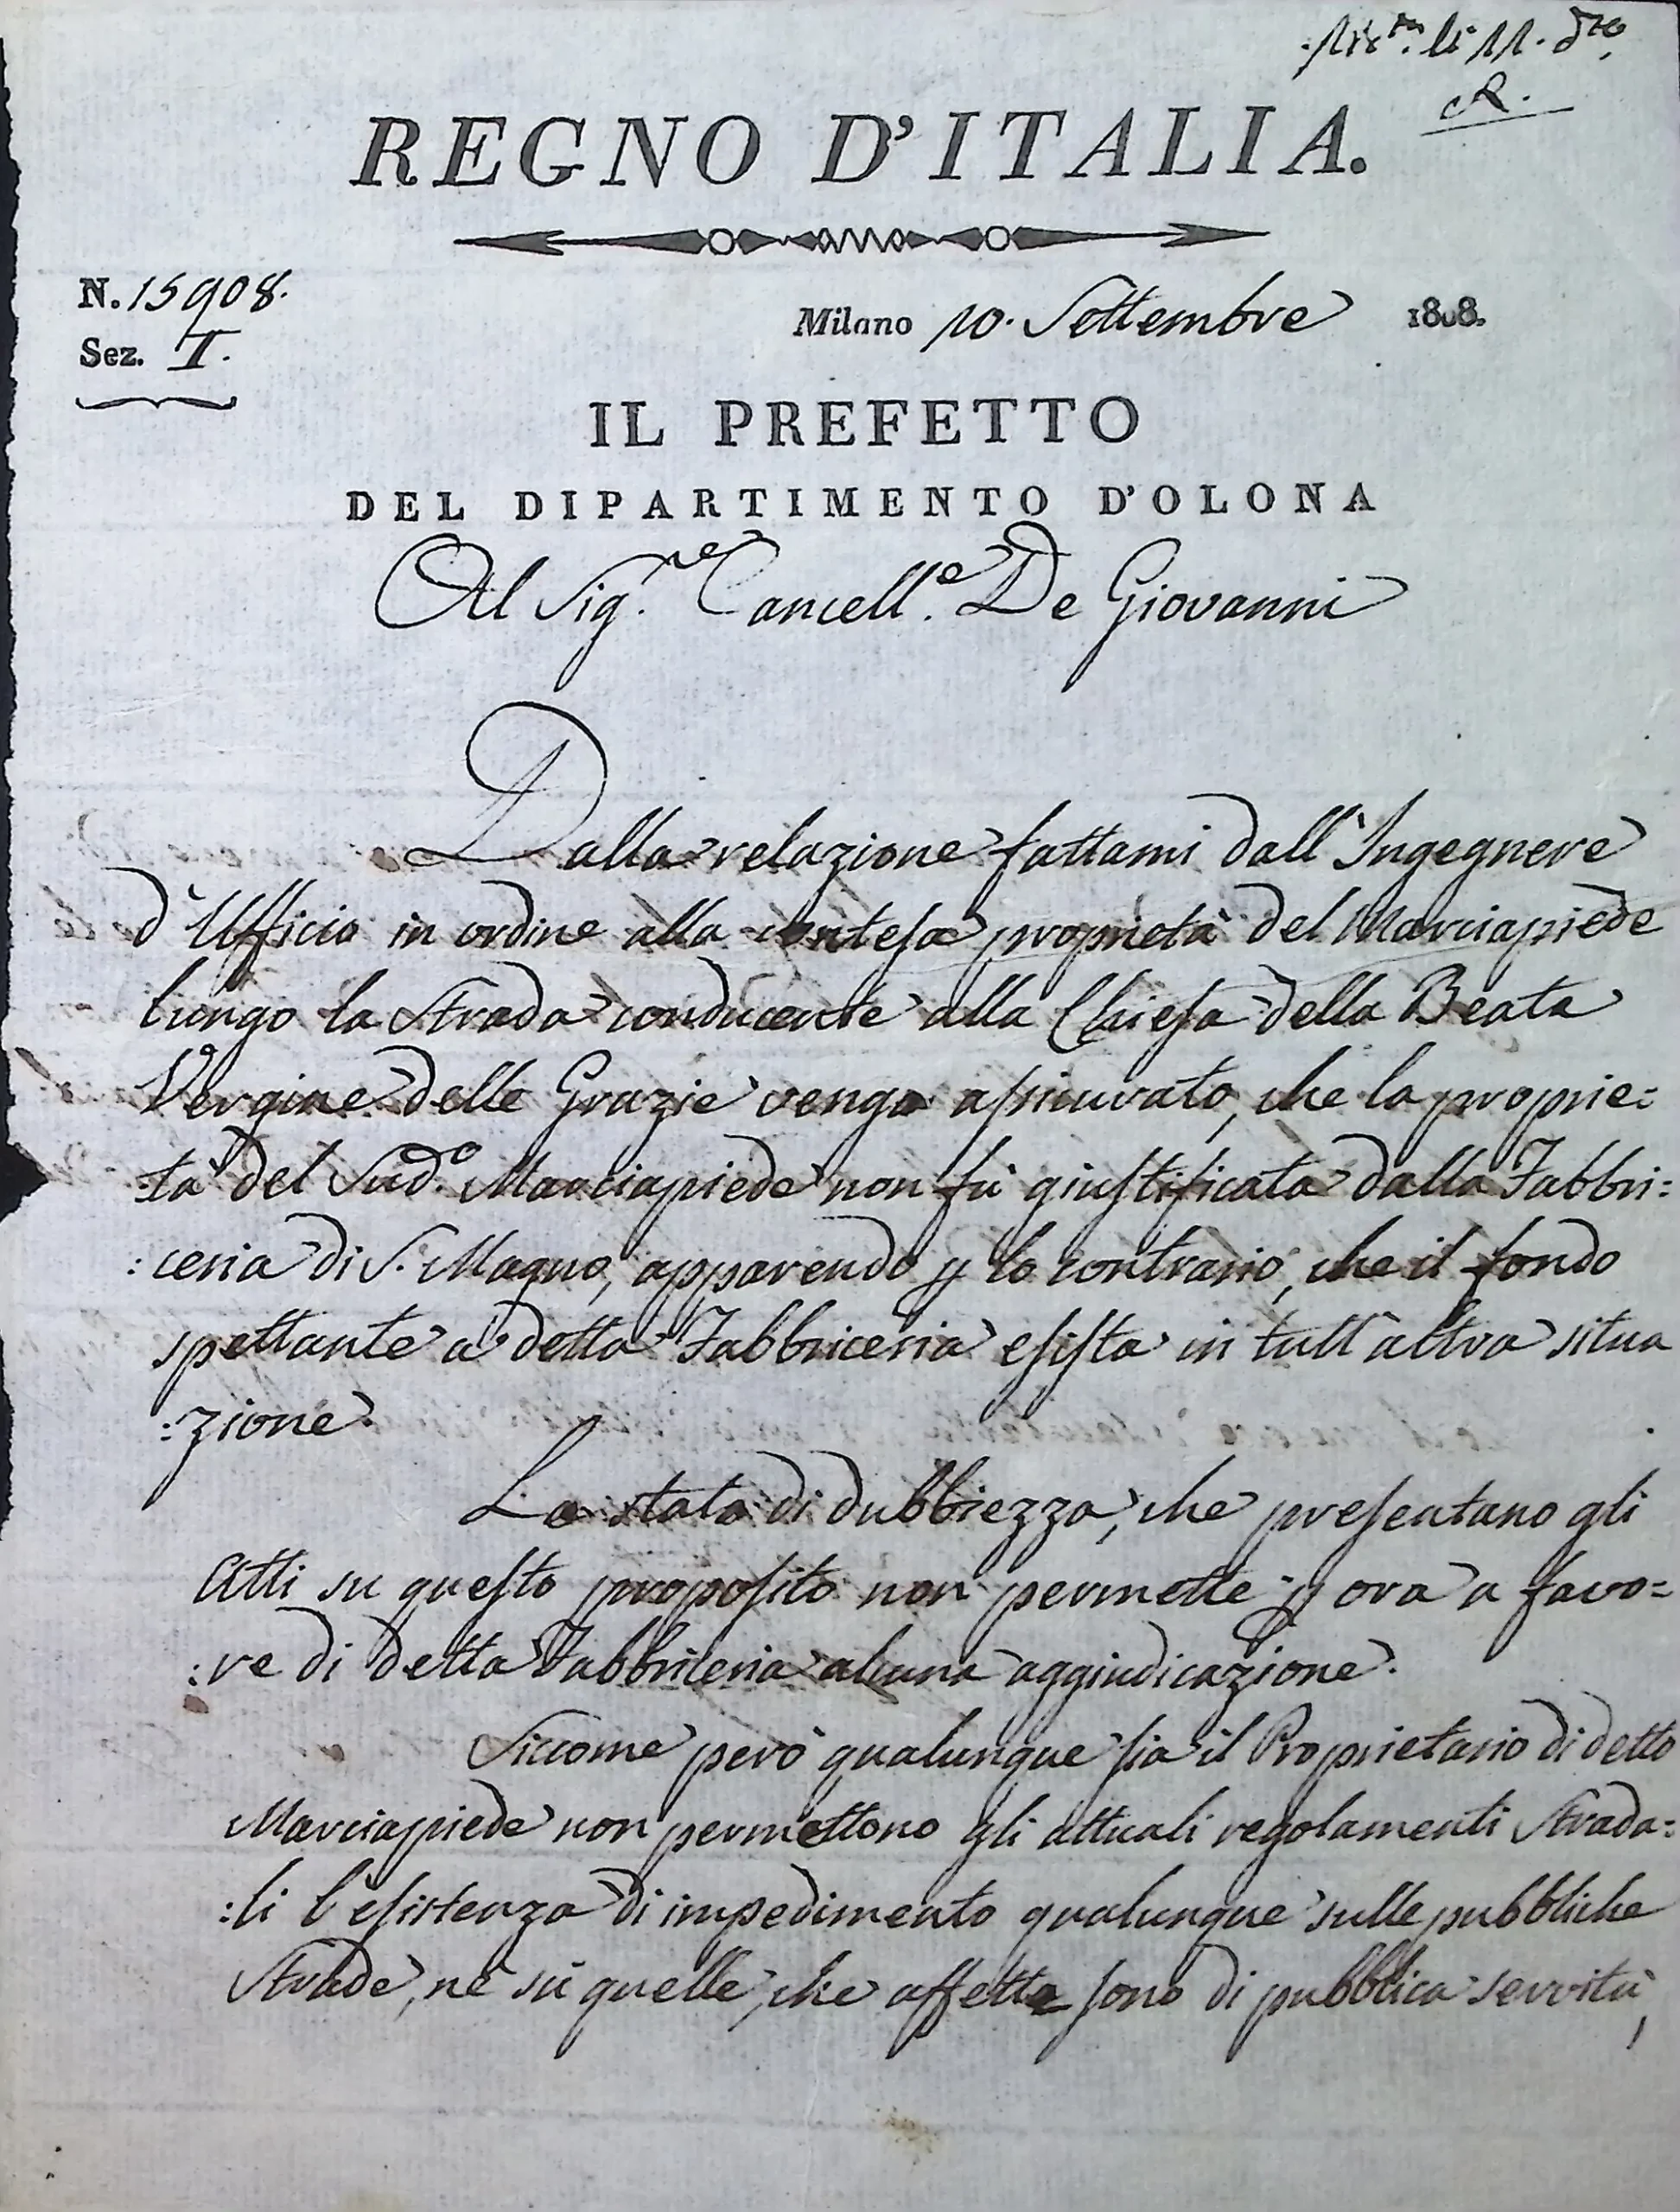 li 11. d.to
R.
REGNO D'ITALIA.
N. 15908.
Milano 10. Settembre 1808.
Sez. I.
IL PREFETTO
DEL DIPARTIMENTO D'OLONA
Al Sig.re Cancell.e De Giovanni
Dalla relazione fattami dall'Ingegnere
d'Ufficio in ordine alla contesa proprietà del Marciapiede
lungo la Strada conducente alla Chiesa della Beata
Vergine delle Grazie vengo assicurato, che la proprie=
tà del Sud.o Marciapiede non fù giustificata dalla Fabbri=
:ceria di S. Magno, apparendo p lo contrario, che il fondo
spettante a detta Fabbriceria esista in tutt'altra situa
:zione.
Lo stato di dubbiezza, che presentano gli
Atti su questo proposito non permette p ora a favo=
:re di detta Fabbriceria alcuna aggiudicazione.
Siccome però qualunque sia il Proprietario di detto
Marciapiede non permettono gli attuali regolamenti Strada=
:li l'esistenza di impedimento qualunque sulle pubbliche
Strade, nè sù quelle, che affette sono di pubblica servitù,